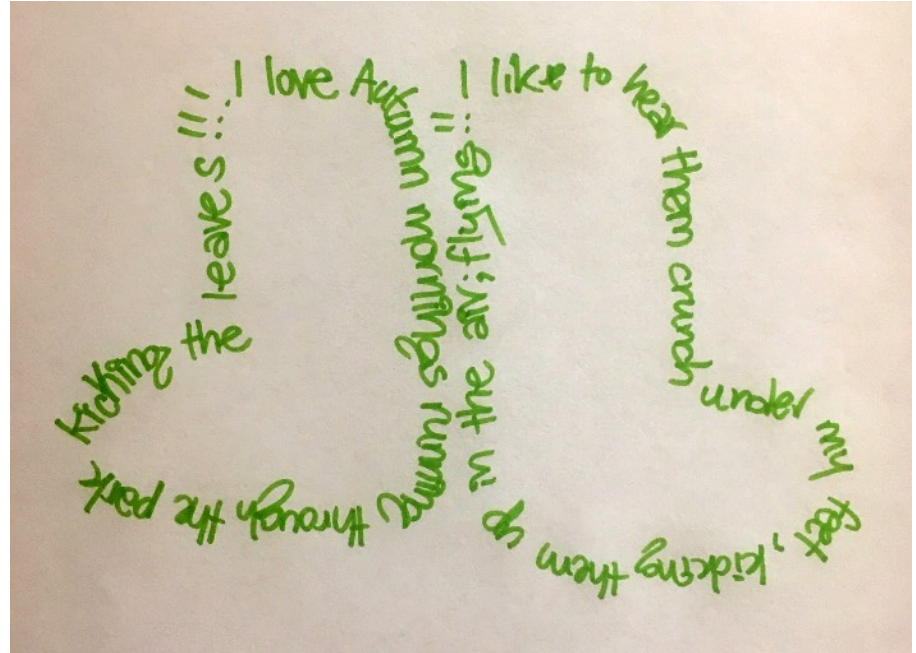 I love Autumn mornings running through the park kicking the leaves!!!...
I like to hear them crunch under my feet, kicking them up in the air; flying..!!